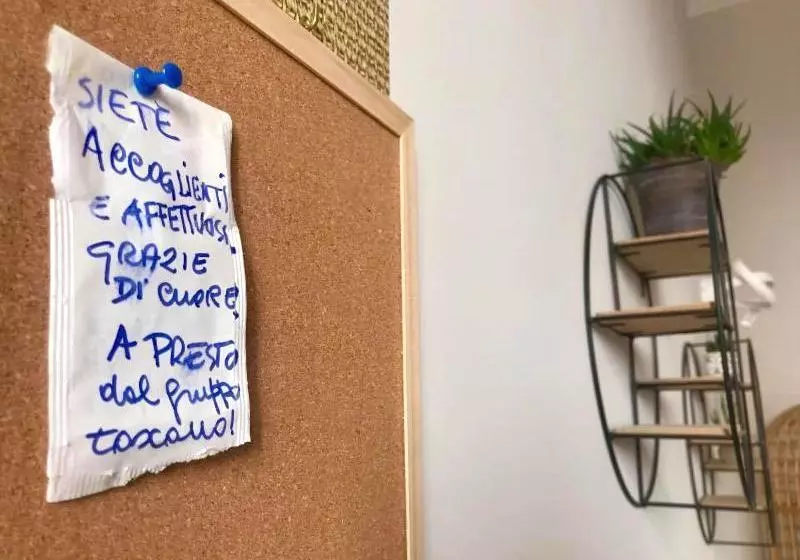 SIETE
ACCOGLIENTI
E AFFETTUOSI.
GRAZIE
DI CUORE,
A PRESTO
dal gruppo
toscano!